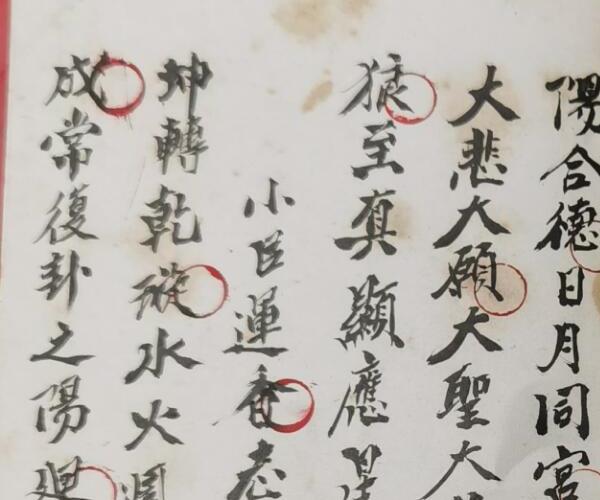 陽合德日月同宮
大悲大願大聖大
猿至真顯應
小臣運香老
坤轉乾璇水火
成常復卦之陽